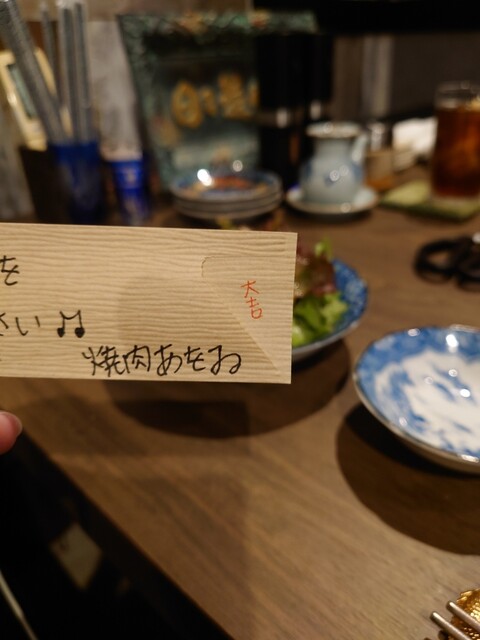 を
さい♫
大吉
焼肉あをゐ